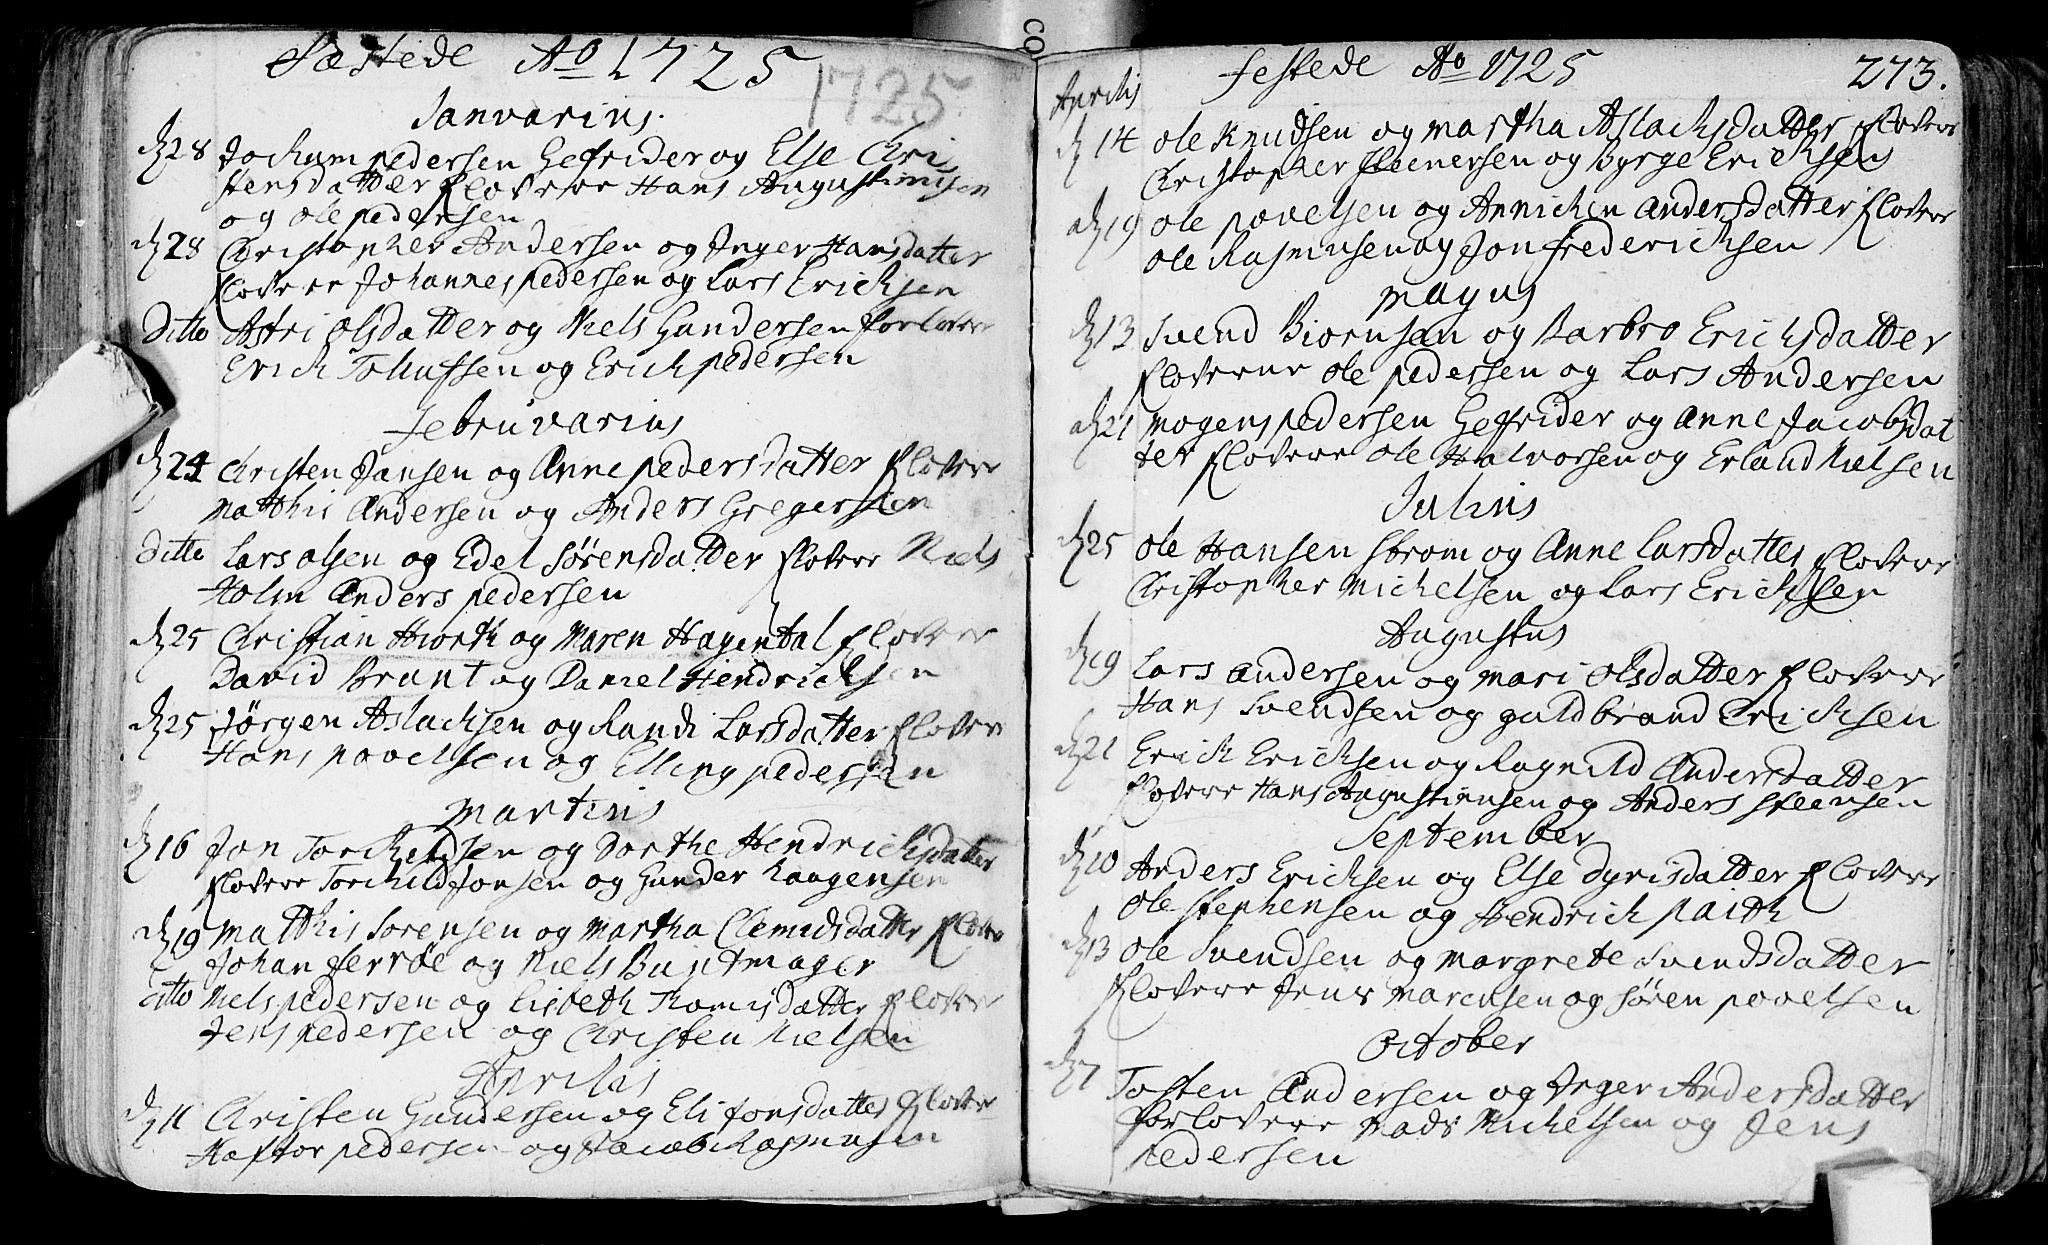 Fæstede Ao 1725
1725
Janvarius.
d 28 Jochum pedersen Gefrider og Else Chri
stensdatter floverr Hans Augustinusen
og ole pedersen
d 28 Christopher Andersen og Inger Hansdatter
floverr Johannes pedersen og Lars Ericksen
Ditto Astri olsdatter og Niels Gundersen forloverr
Erick Tolluffsen og Erick pedersen
Februvarius
d 24 Christen Jansen og Anne pedersdatter floverr
Matthis Andersen og Anders Gregersen
Ditto Lars olsen og Edel Sørensdatter floverr Niels
Holm Anders pedersen
d 25 Christian Hiorth og Maren Hagendal floverr
David Brunt og Daniel Hendricksen
d 25 Jørgen Aslachsen og Randi Larsdatter floverr
Hans povelsen og Elling pedersen
Martius
d 16 Jon Torchildsen og Dorthe Hendrichsdatter
floverr Torchild Jonsen og Gunder Kaagensen
d 19 Matthis Sorensen og Martha Clemidsdatter floverr
Johan Ferrøe og Niels Buntmager
ditto Niels pedersen og Lisbeth Thomisdatter floverr
Jens pedersen og Christen Nielsen
Aprilis
d 11 Christen Gundersen og Eli Jonsdatter floverr
Haftor pedersen og Jacob Rasmusen
Festede Ao 1725 273.
Aprilis
d 14 ole Knudsen og Martha Aslachsdatter floverr
Christopher Steenersen og Byrge Ericksen
d 19 ole povelsen og Annichen Andersdatter floverr
ole Rasmusen og Jon Fredericksen
Majus
d 13 Svend Biørnsen og Barbro Erichsdatter
floverne ole pedersen og Lars Andersen
d 21 Mogens pedersen Gefrider og Anne Jacobsdat
ter floverr ole Halvorsen og Erland Nielsen
Julius
d 25 ole Hansen Strøm og Anne Larsdatter floverr
Christopher Michelsen og Lars Ericksen
Augustus
d 19 Lars Andersen og Mari olsdatter floverr
Hans Svendsen og guldbrand Ericksen
d 21 Erick Ericksen og Ragnild Andersdatter
floverr Hans Augustinusen og Anders Steensen
September
d 10 Anders Ericksen og Else Dyrisdatter floverr
ole Stephensen og Hendrich paith
d 13 ole Svendsen og Margrete Svendsdatter
floverr Jens Marensen og Søren povelsen
October
d 7 Tosten Andersen og Inger Andersdatter
forloverr Mads Michelsen og Jens
pedersen